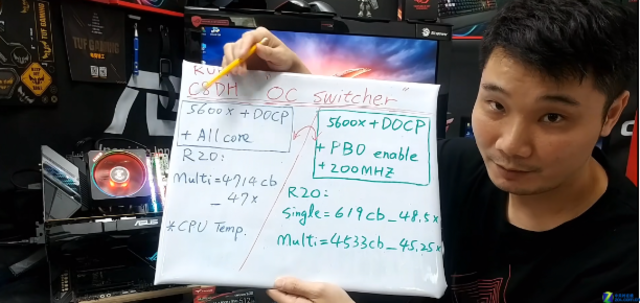 C8DH OC switcher
5600X + DOCP
+ All core
R20:
Multi = 4714 cb
_ 47x
*CPU Temp.
5600X + DOCP
+ PBO enable
+ 200MHZ
R20:
Single = 619cb_48.5x
Multi = 4533cb_45.25x
TUF GAMING